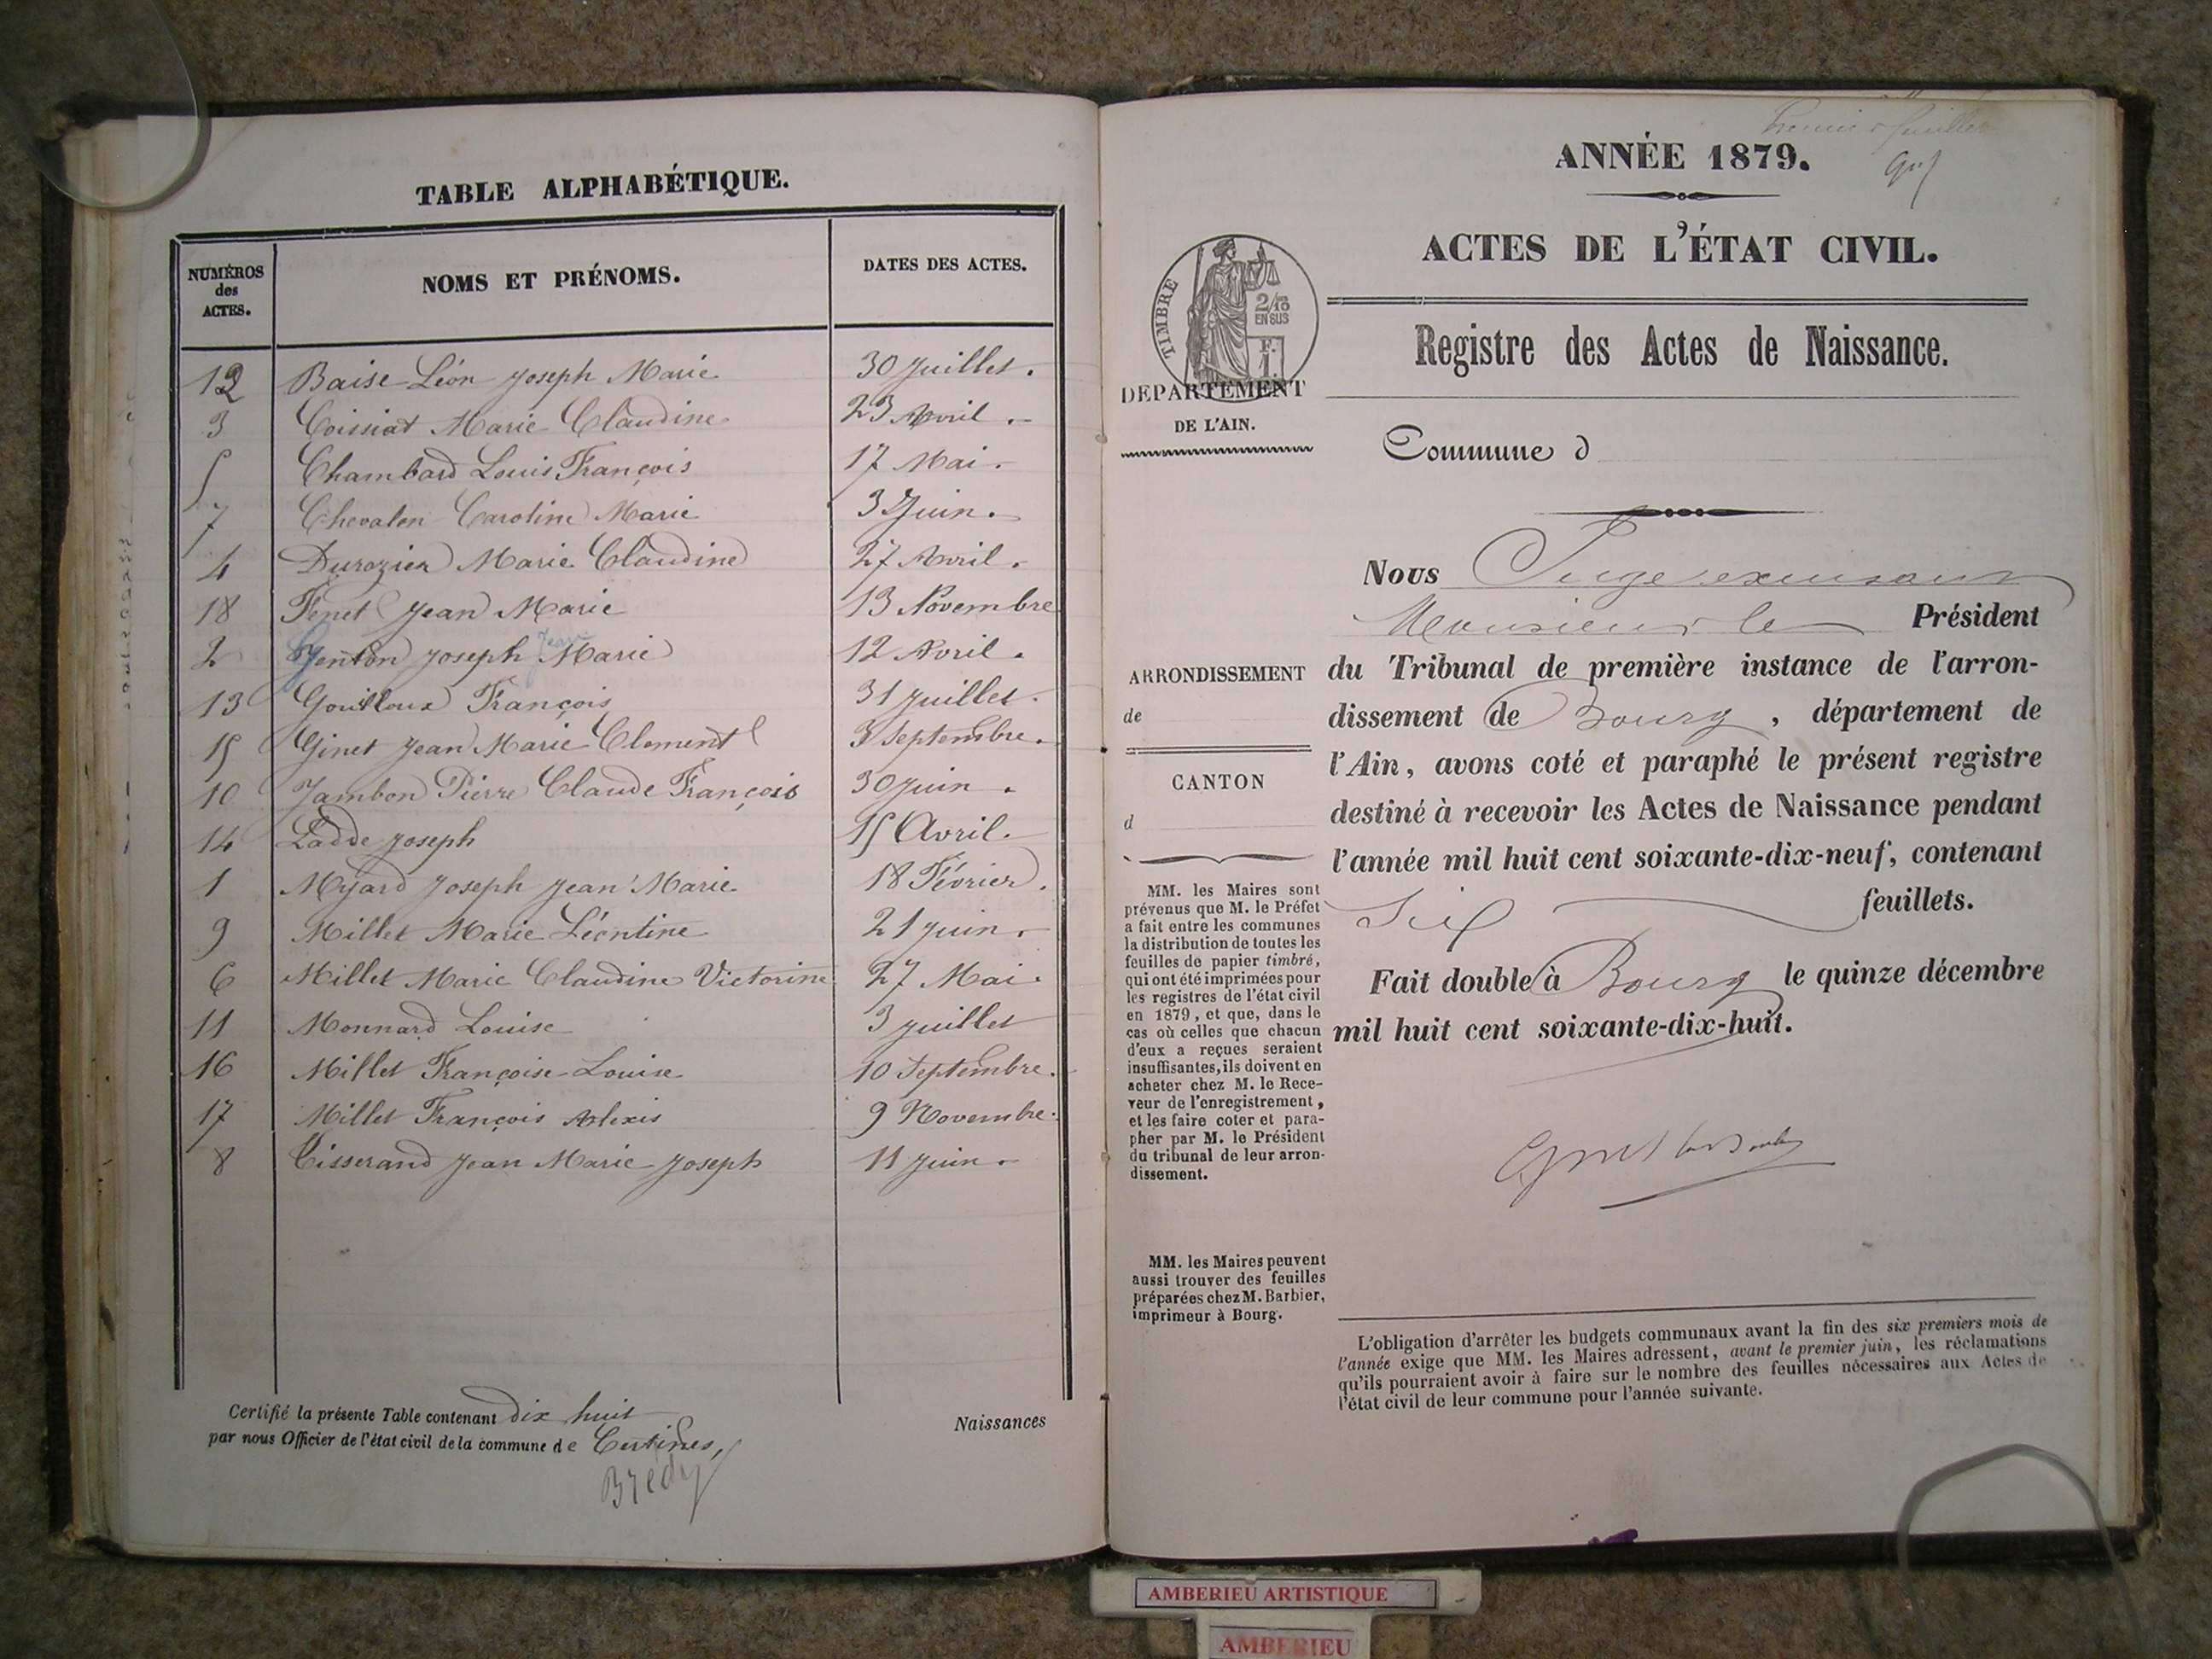 TABLE ALPHABÉTIQUE.
NUMÉROS
des
ACTES.
NOMS ET PRÉNOMS.
DATES DES ACTES.
12 Baise Léon Joseph Marie 30 Juillet.
3 Coissiat Marie Claudine 23 Avril.
5 Chambard Louis François 17 Mai.
7 Chevalon Caroline Marie 3 Juin.
4 Durozier Marie Claudine 27 Avril.
18 Fenet Jean Marie 13 Novembre
2 Genton Joseph Jean Marie 12 Avril.
13 Gouilloux François 31 Juillet.
15 Ginet Jean Marie Clement 3 Septembre.
10 Jambon Pierre Claude François 30 Juin.
14 Ladde Joseph 15 Avril.
1 Myard Joseph Jean Marie 18 Février.
9 Millet Marie Léontine 21 Juin.
6 Millet Marie Claudine Victorine 27 Mai.
11 Monnard Louise 3 Juillet
16 Millet Françoise Louise 10 Septembre.
17 Millet François Alexis 9 Novembre.
8 Tisserand Jean Marie Joseph 11 Juin.
Certifié la présente Table contenant dix huit Naissances
par nous Officier de l'état civil de la commune de Certines,
Brédy
ANNÉE 1879.
ACTES DE L'ÉTAT CIVIL.
TIMBRE
2/10
EN SUS
F.
1.
Registre des Actes de Naissance.
DÉPARTEMENT
DE L'AIN.
Commune d
Nous Juge
Monsieur le Président
ARRONDISSEMENT
de
CANTON
d
du Tribunal de première instance de l'arron-
dissement de Bourg, département de
l'Ain, avons coté et paraphé le présent registre
destiné à recevoir les Actes de Naissance pendant
l'année mil huit cent soixante-dix-neuf, contenant
Six feuillets.
Fait double à Bourg le quinze décembre
mil huit cent soixante-dix-huit.
MM. les Maires sont
prévenus que M. le Préfet
a fait entre les communes
la distribution de toutes les
feuilles de papier timbré,
qui ont été imprimées pour
les registres de l'état civil
en 1879, et que, dans le
cas où celles que chacun
d'eux a reçues seraient
insuffisantes, ils doivent en
acheter chez M. le Rece-
veur de l'enregistrement,
et les faire coter et para-
pher par M. le Président
du tribunal de leur arron-
dissement.
MM. les Maires peuvent
aussi trouver des feuilles
préparées chez M. Barbier,
imprimeur à Bourg.
L'obligation d'arrêter les budgets communaux avant la fin des six premiers mois de
l'année exige que MM. les Maires adressent, avant le premier juin, les réclamations
qu'ils pourraient avoir à faire sur le nombre des feuilles nécessaires aux Actes de
l'état civil de leur commune pour l'année suivante.
AMBERIEU ARTISTIQUE
AMBERIEU